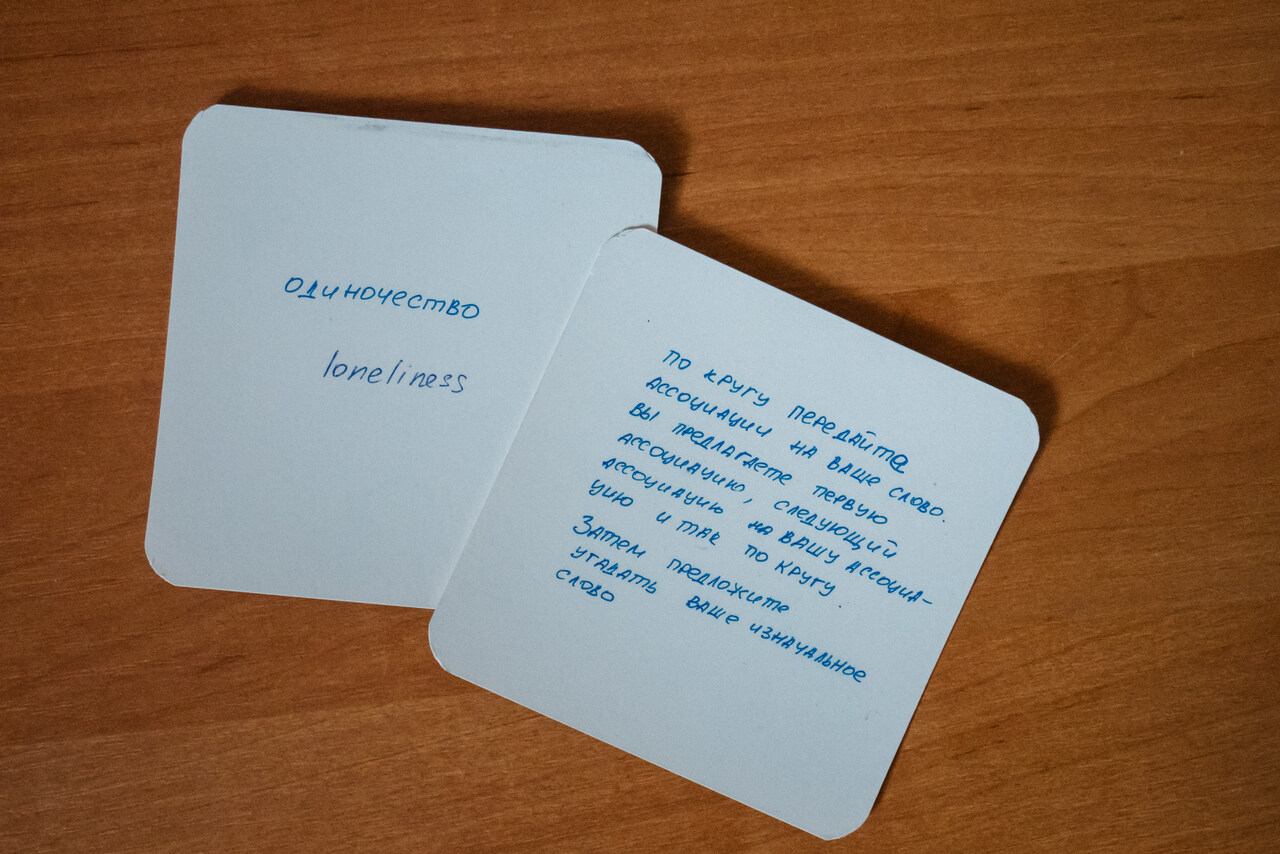 одиночество
loneliness
по кругу передайте
ассоциации на ваше слово.
вы предлагаете первую
ассоциацию, следующий
ассоциацию на вашу ассоциа-
цию и так по кругу.
Затем предложите
угадать ваше изначальное
слово